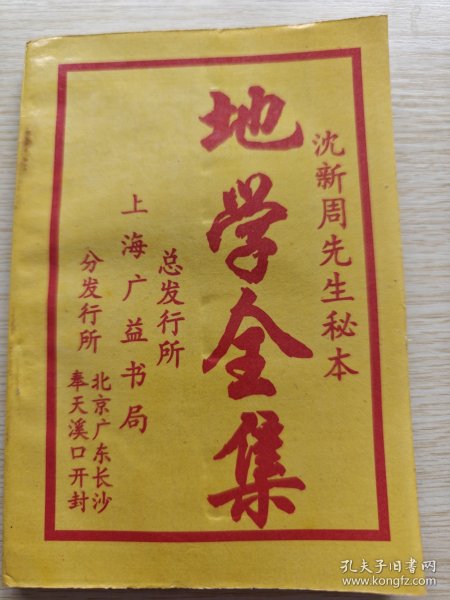 沈新周先生秘本
地学全集
总发行所
上海广益书局
分发行所
北京广东长沙
奉天溪口开封
孔夫子旧书网
www.kongfz.com